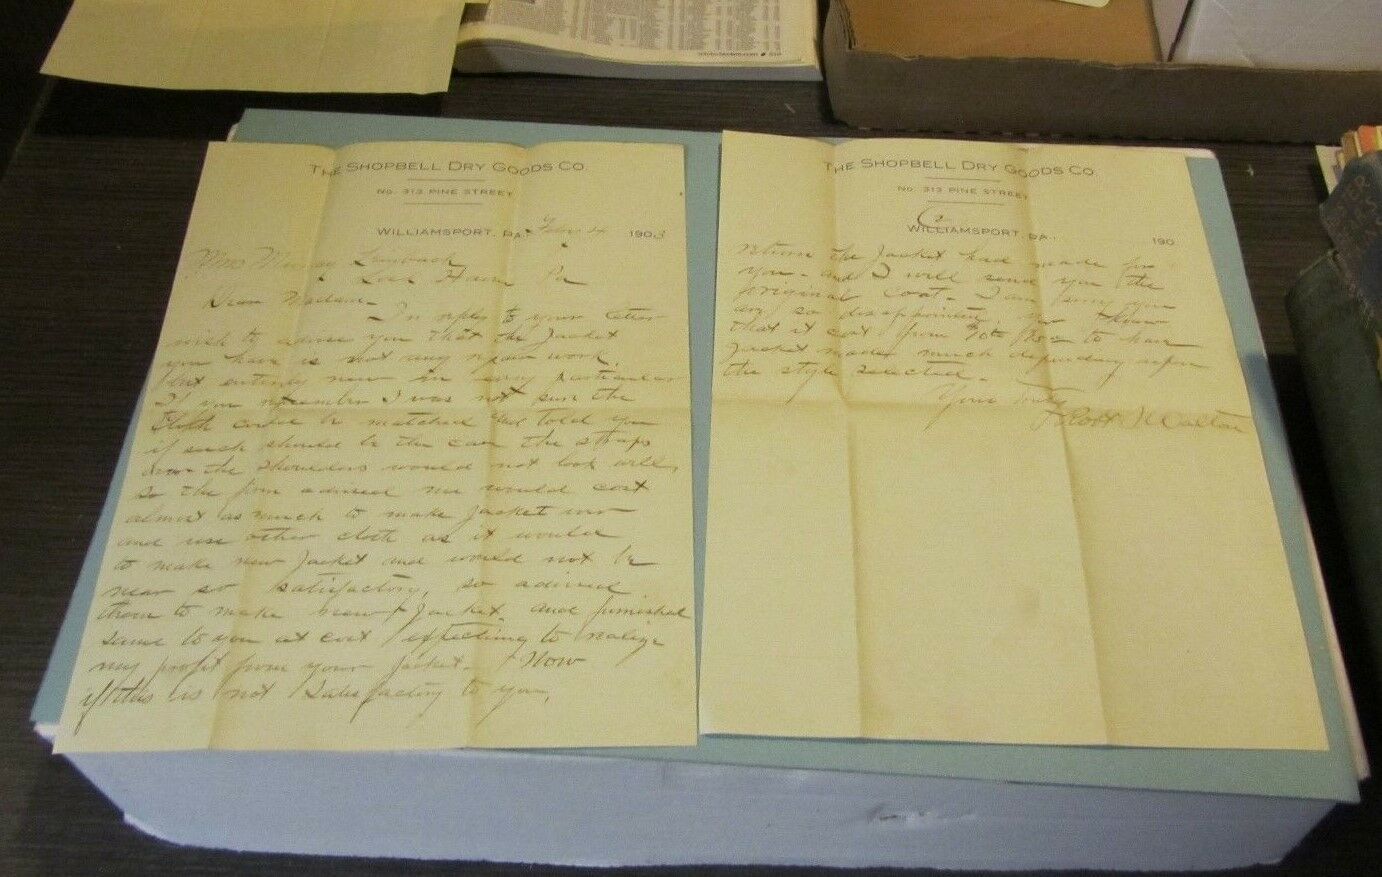 THE SHOPBELL DRY GOODS CO.
NO. 313 PINE STREET
WILLIAMSPORT, PA. 24 1903
Lock Haven Pa
Dear Madam-
In reply to your letter
wish to advise you that the Jacket
you have is not any repair work,
but entirely new in every particular
If you remember I was not sure the
Cloth could be matched and told you
if such should be the case the straps
over the shoulders would not look well,
so the firm advised me would cost
almost as much to make Jacket over
and use other cloth as it would
to make new Jacket and would not be
near so satisfactory, so advised
them to make new Jacket and furnished
same to you at cost expecting to realize
my profit from your Jacket. Now
if this is not Satisfactory to you,
THE SHOPBELL DRY GOODS CO.
NO. 313 PINE STREET
2
WILLIAMSPORT, PA. 190
return the Jacket had made for
you - and I will send you the
original coat. I am sorry you
are so disappointed,
that it cost from to have
Jacket made much depending upon
the style selected.
Yours Truly
Walton